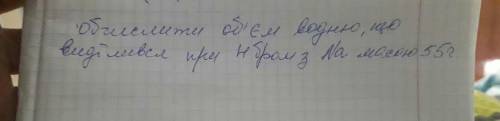 Обчислити об'єм водню, що
виділився при H бром з Na масою 55г